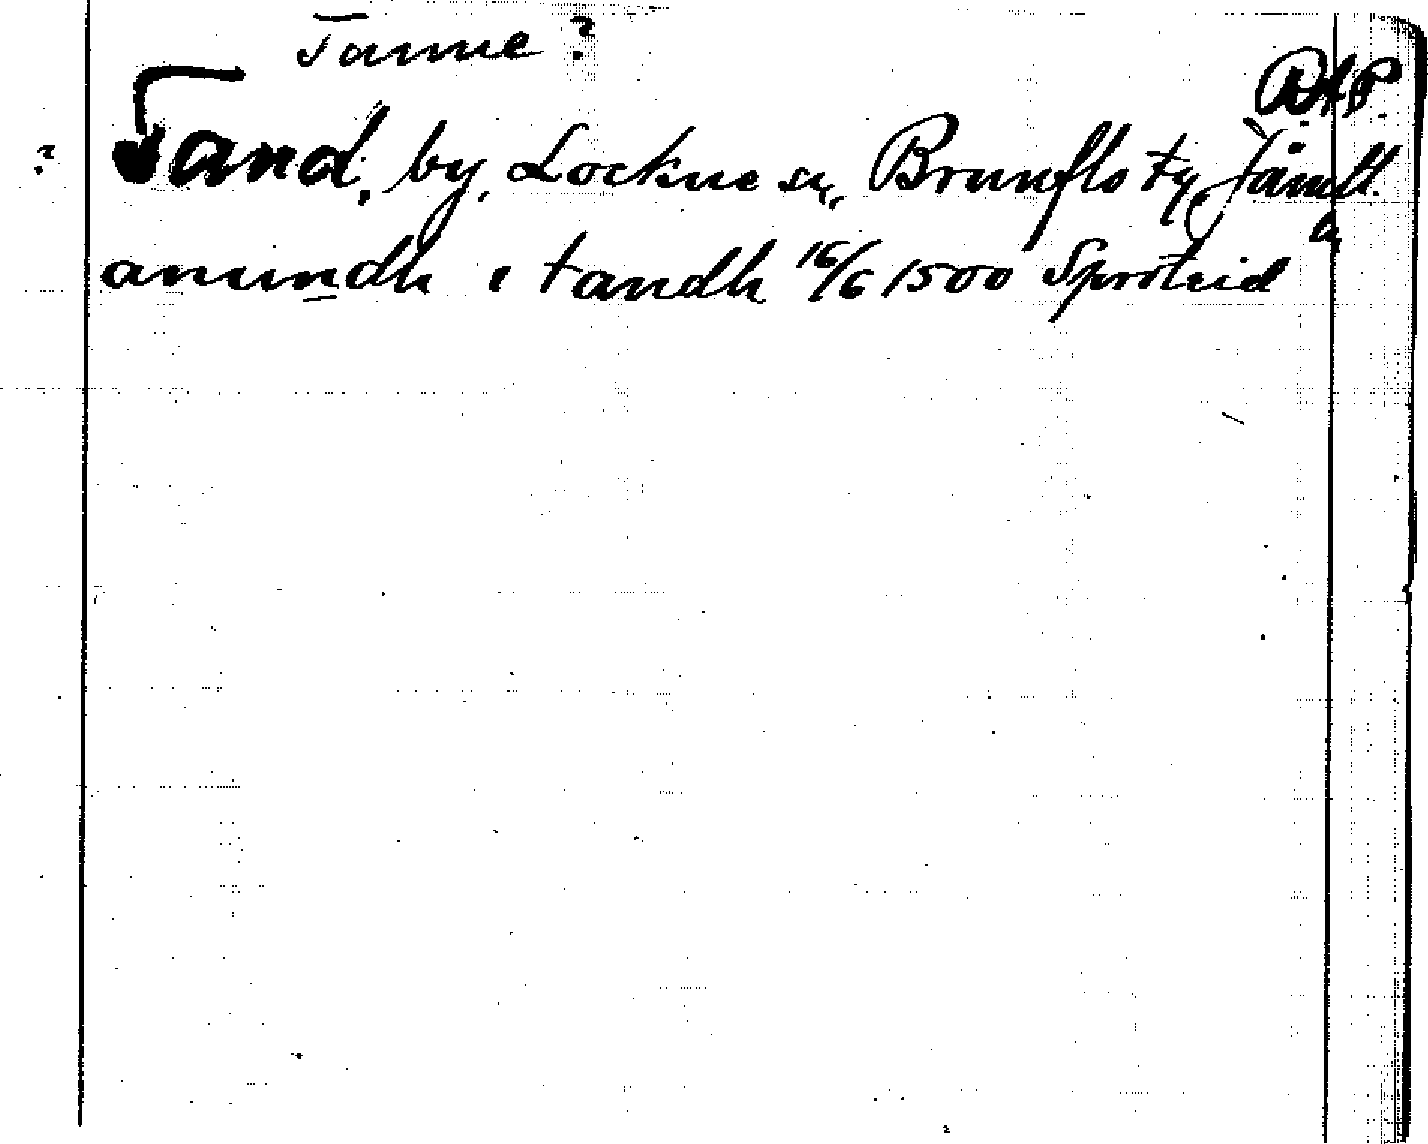 Tanne?
DAP
? Tand, by, Lockne sn, Brunflo tg, Jämtl.
anundh i tandh 16/6 1500 Sproteid